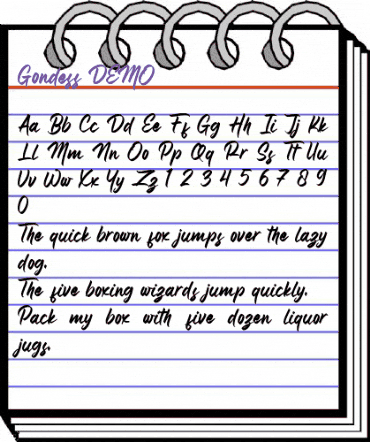 Gondess DEMO
Aa Bb Cc Dd Ee Ff Gg Hh Ii Jj Kk
Ll Mm Nn Oo Pp Qq Rr Ss Tt Uu
Vv Ww Xx Yy Zz 1 2 3 4 5 6 7 8 9
0
The quick brown fox jumps over the lazy
dog.
The five boxing wizards jump quickly.
Pack my box with five dozen liquor
jugs.